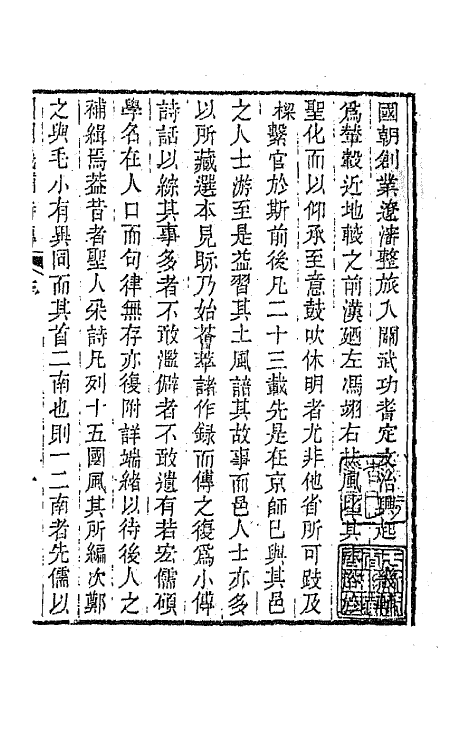 國朝創業遼瀋整旅入關武功耆定文治興起
爲輦轂近地較之前漢廼左馮翊右扶風比其
聖化而以仰承至意鼓吹休明者尤非他省所可跂及
樑繫官於斯前後凡二十三載先是在京師已與其邑
之人士游至是益習其土風諳其故事而邑人士亦多
以所藏選本見眎乃始薈萃諸作録而傳之復爲小傳
詩話以綜其事多者不敢濫僻者不敢遺有若宏儒碩
學名在人口而句律無存亦復附詳端緒以待後人之
補緝焉葢昔者聖人采詩凡列十五國風其所編次鄭
之與毛小有異同而其首二南也則一二南者先儒以